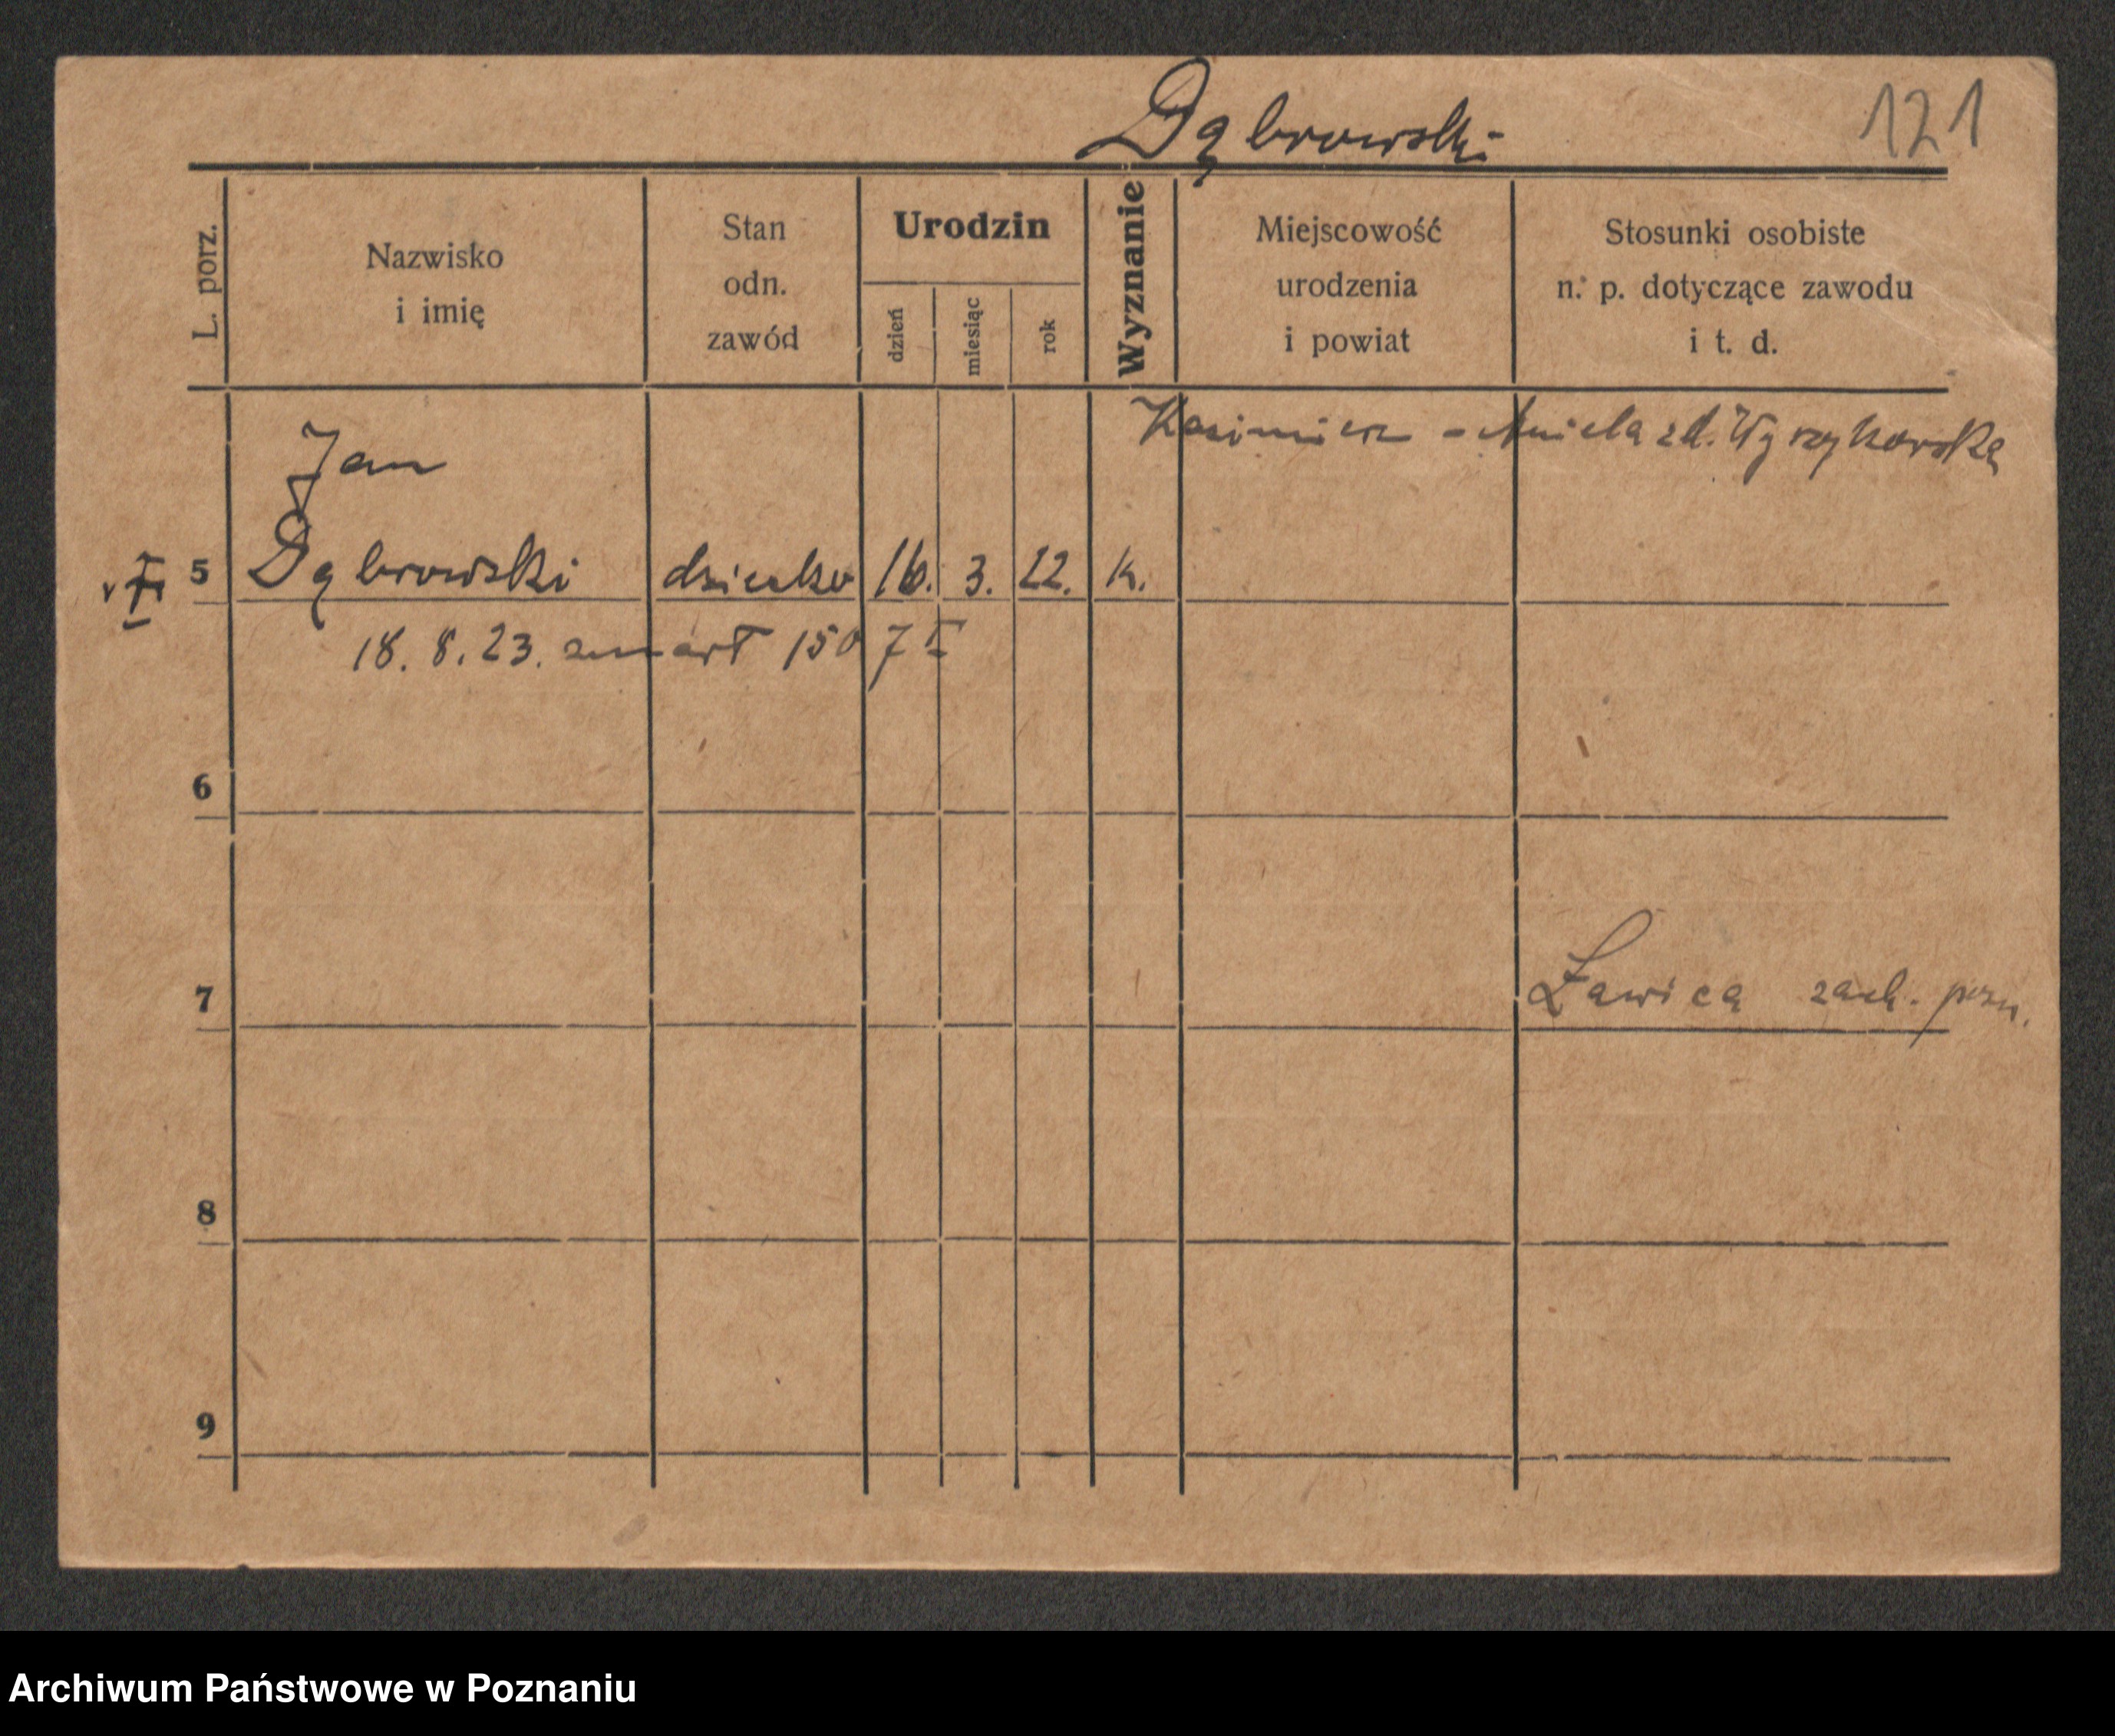 Dąbrowski
121
L. porz.
Nazwisko
i imię
Stan
odn.
zawód
Urodzin
dzień
miesiąc
rok
Wyznanie
Miejscowość
urodzenia
i powiat
Stosunki osobiste
n. p. dotyczące zawodu
i t. d.
Kasimierz - Aniela zd. Wyrzykowska
Jan
5 Dąbrowski dziecko 16. 3. 22. k.
18. 8. 23. zmarł 150
6
7 Ławica zach. pozn.
8
9
Archiwum Państwowe w Poznaniu